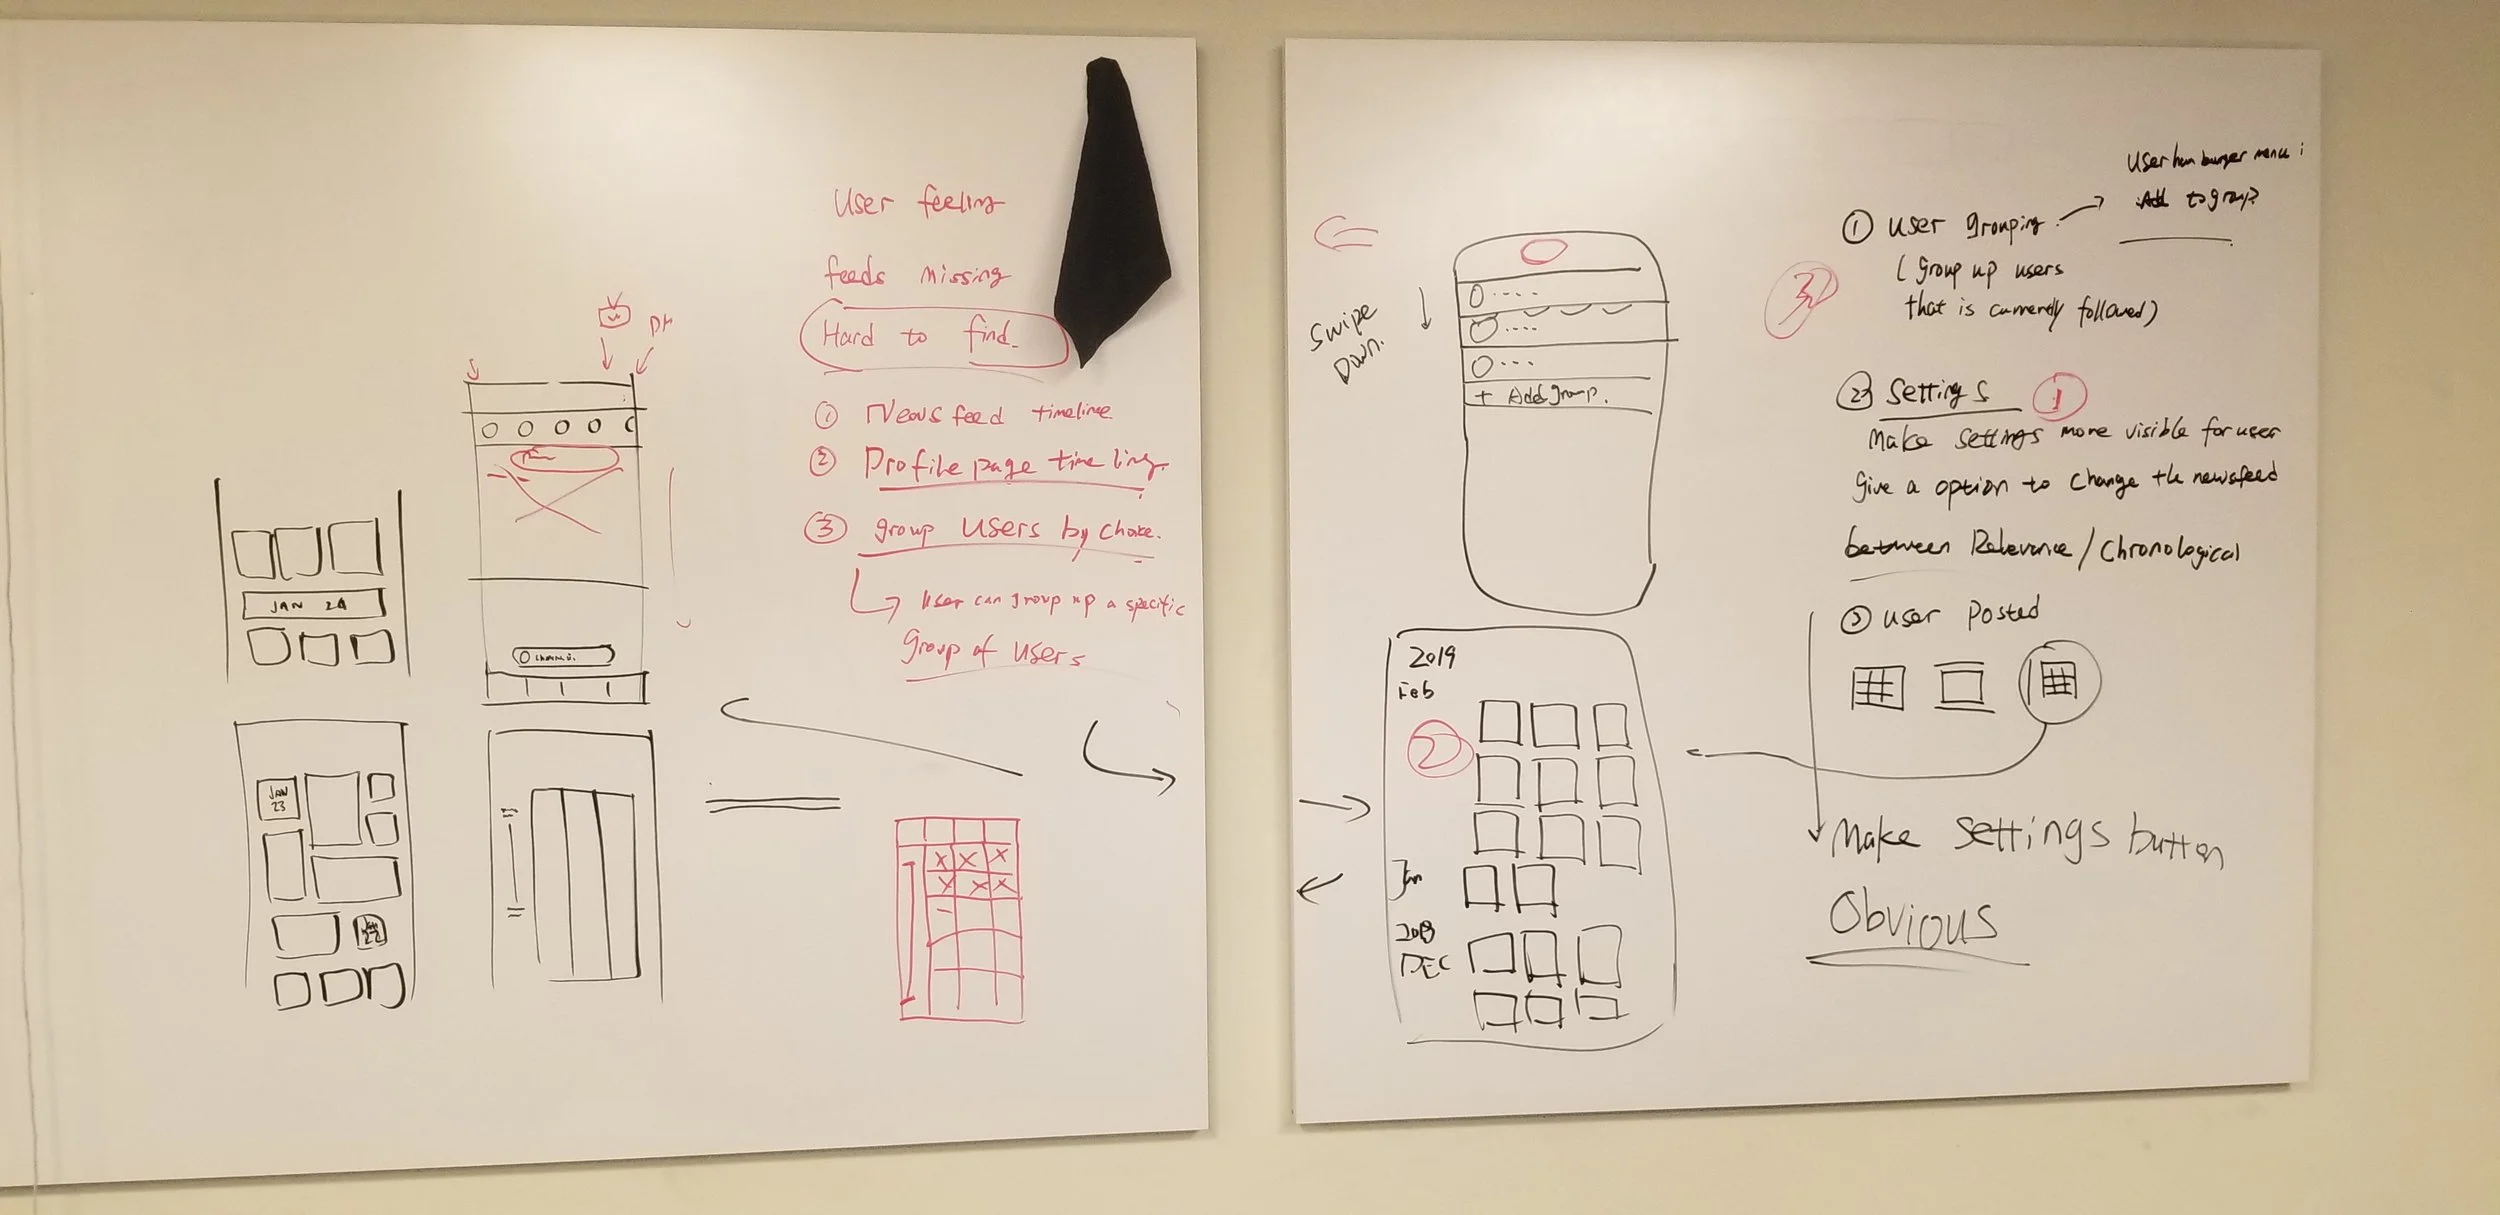 User feeling
feeds missing
Hard to find.
① News feed timeline
② Profile page time line.
③ group users by choice.
User can group up a specific
Group of users
JAN 24
JAN
23
Swipe
Down.
+ Add group.
2019
Feb
②
Jan
2018
DEC
User ham burger menu :
Add to group
① User grouping
( Group up users
that is currently followed)
3
② Settings
1
Make settings more visible for user
Give a option to change the newsfeed
between Relevance / Chronological
③ User Posted
Make settings button
Obvious